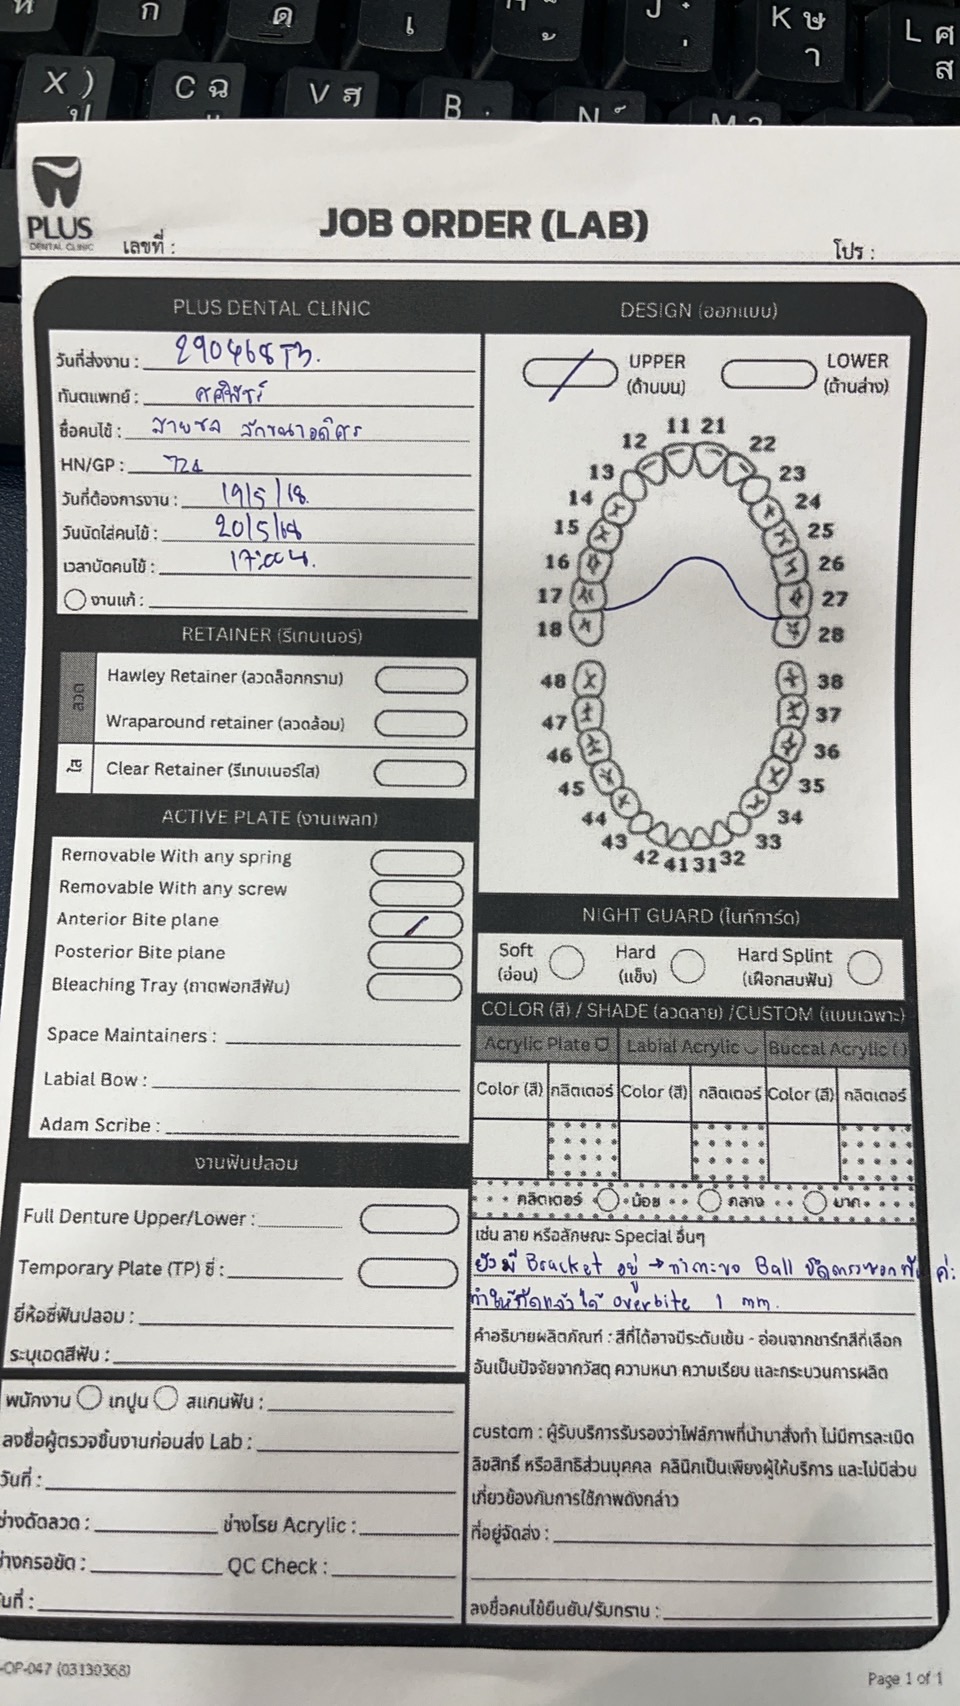 ก
ด
เ
K ษ
า
L ศ
ส
X )
ป
C ฉ
V ฮ
B
N
M
PLUS
DENTAL CLINIC
JOB ORDER (LAB)
เลขที่ :
โปร :
PLUS DENTAL CLINIC
วันที่ส่งงาน : 290468
ทันตแพทย์ :
ชื่อคนไข้ : สายชล
HN/GP : 724
วันที่ต้องการงาน : 19/5/68
วันนัดใส่คนไข้ : 20/5/68
เวลานัดคนไข้ : 17:00 น.
งานแก้ :
RETAINER (รีเทนเนอร์)
ลวด
Hawley Retainer (ลวดล็อกกราม)
Wraparound retainer (ลวดล้อม)
ใส
Clear Retainer (รีเทนเนอร์ใส)
ACTIVE PLATE (งานเพลท)
Removable With any spring
Removable With any screw
Anterior Bite plane
Posterior Bite plane
Bleaching Tray (ถาดฟอกสีฟัน)
Space Maintainers :
Labial Bow :
Adam Scribe :
งานฟันปลอม
Full Denture Upper/Lower :
Temporary Plate (TP) ซี่ :
ยี่ห้อซี่ฟันปลอม :
ระบุเฉดสีฟัน :
พนักงาน เทปูน สแกนฟัน :
ลงชื่อผู้ตรวจชิ้นงานก่อนส่ง Lab :
วันที่ :
ช่างดัดลวด : ช่างโรย Acrylic :
ช่างกรอขัด : QC Check :
วันที่ :
-OP-047 (03130368)
DESIGN (ออกแบบ)
UPPER
(ด้านบน)
LOWER
(ด้านล่าง)
11 21
12 22
13 23
14 24
15 25
16 26
17 27
18 28
48 38
47 37
46 36
45 35
44 34
43 33
42 41 31 32
NIGHT GUARD (ไนท์การ์ด)
Soft
(อ่อน)
Hard
(แข็ง)
Hard Splint
(เฝือกสบฟัน)
COLOR (สี) / SHADE (ลวดลาย) /CUSTOM (แบบเฉพาะ)
Acrylic Plate Labial Acrylic Buccal Acrylic ( )
Color (สี) กลิตเตอร์ Color (สี) กลิตเตอร์ Color (สี) กลิตเตอร์
กลิตเตอร์ น้อย กลาง มาก
เช่น ลาย หรือลักษณะ Special อื่นๆ
ยังมี Bracket อยู่ → ทำตะขอ Ball ค่ะ
ทำให้กัดแล้วได้ overbite 1 mm.
คำอธิบายผลิตภัณฑ์ : สีที่ได้อาจมีระดับเข้ม - อ่อนจากชาร์ทสีที่เลือก
อันเป็นปัจจัยจากวัสดุ ความหนา ความเรียบ และกระบวนการผลิต
custom : ผู้รับบริการรับรองว่าไฟล์ภาพที่นำมาสั่งทำ ไม่มีการละเมิด
ลิขสิทธิ์ หรือสิทธิส่วนบุคคล คลินิกเป็นเพียงผู้ให้บริการ และไม่มีส่วน
เกี่ยวข้องกับการใช้ภาพดังกล่าว
ที่อยู่จัดส่ง :
ลงชื่อคนไข้ยืนยัน/รับทราบ :
Page 1 of 1